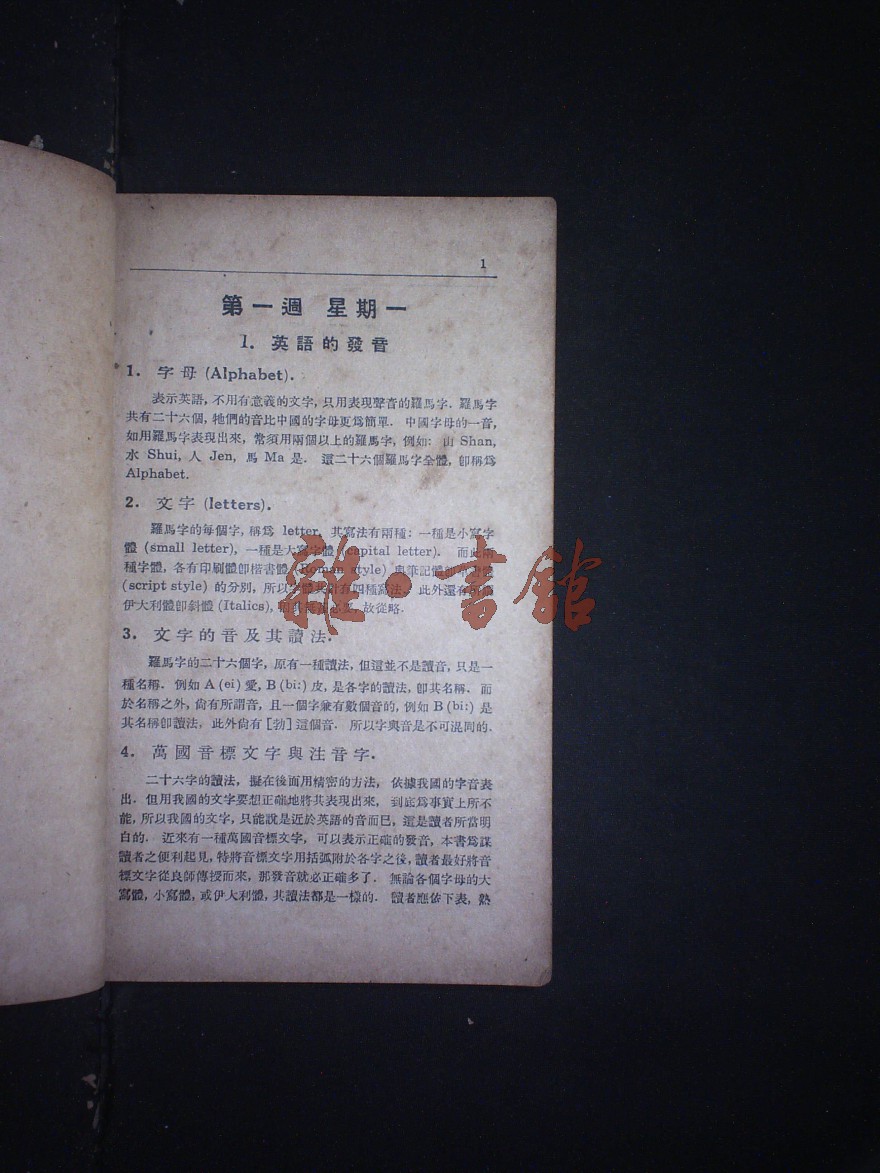 1
第一週 星期一
1. 英語的發音
1. 字母 (Alphabet).
表示英語, 不用有意義的文字, 只用表現聲音的羅馬字. 羅馬字
共有二十六個, 牠們的音比中國的字母更爲簡單. 中國字母的一音,
如用羅馬字表現出來, 常須用兩個以上的羅馬字, 例如: 山 Shan,
水 Shui, 人 Jen, 馬 Ma 是. 這二十六個羅馬字全體, 卽稱爲
Alphabet.
2. 文字 (letters).
羅馬字的每個字, 稱爲 letter, 其寫法有兩種: 一種是小寫字
體 (small letter), 一種是大寫字體 (capital letter). 而此兩
種字體, 各有印刷體卽楷書體 (Roman style) 與筆記體卽
(script style) 的分別, 所以字體共計有四種寫法. 此外還有所謂
伊大利體卽斜體 (Italics), 故從略.
3. 文字的音及其讀法.
羅馬字的二十六個字, 原有一種讀法, 但這並不是讀音, 只是一
種名稱. 例如 A (ei) 愛, B (bi:) 皮, 是各字的讀法, 卽其名稱. 而
於名稱之外, 尙有所謂音, 且一個字兼有數個音的, 例如 B (bi:) 是
其名稱卽讀法, 此外尙有 [勃] 這個音. 所以字與音是不可混同的.
4. 萬國音標文字與注音字.
二十六字的讀法, 擬在後面用精密的方法, 依據我國的字音表
出. 但用我國的文字要想正確地將其表現出來, 到底爲事實上所不
能, 所以我國的文字, 只能說是近於英語的音而已, 這是讀者所當明
白的. 近來有一種萬國音標文字, 可以表示正確的發音, 本書爲謀
讀者之便利起見, 特將音標文字用括弧附於各字之後, 讀者最好將音
標文字從良師傳授而來, 那發音就必正確多了. 無論各個字母的大
寫體, 小寫體, 或伊大利體, 其讀法都是一樣的. 讀者應依下表, 熟
雜·書館